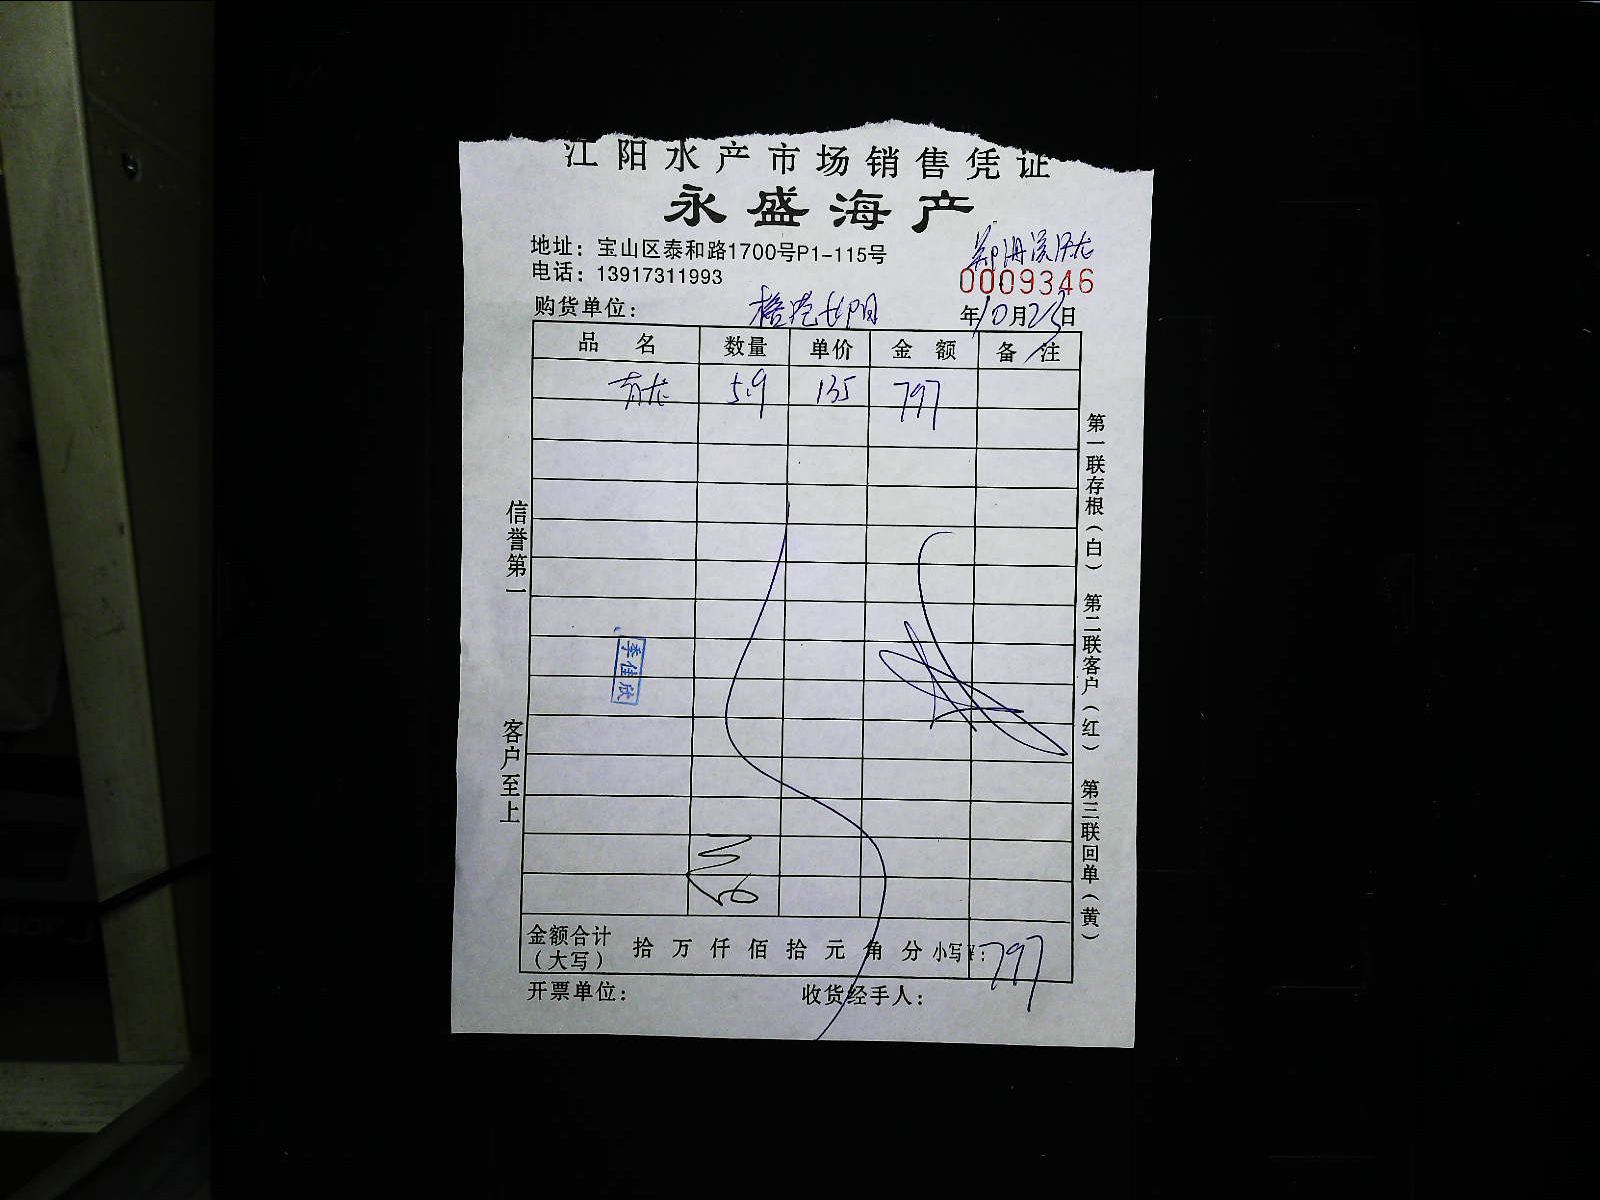 江阳水产市场销售凭证
永盛海产
地址：宝山区泰和路1700号P1-115号
电话：13917311993
0009346
购货单位：
年10月23日
品 名 数量 单价 金 额 备 注
青龙 5.9 135 797
信誉第一
客户至上
季佳欣
第一联存根（白） 第二联客户（红） 第三联回单（黄）
金额合计（大写） 拾 万 仟 佰 拾 元 角 分 小写¥：797
开票单位： 收货经手人：